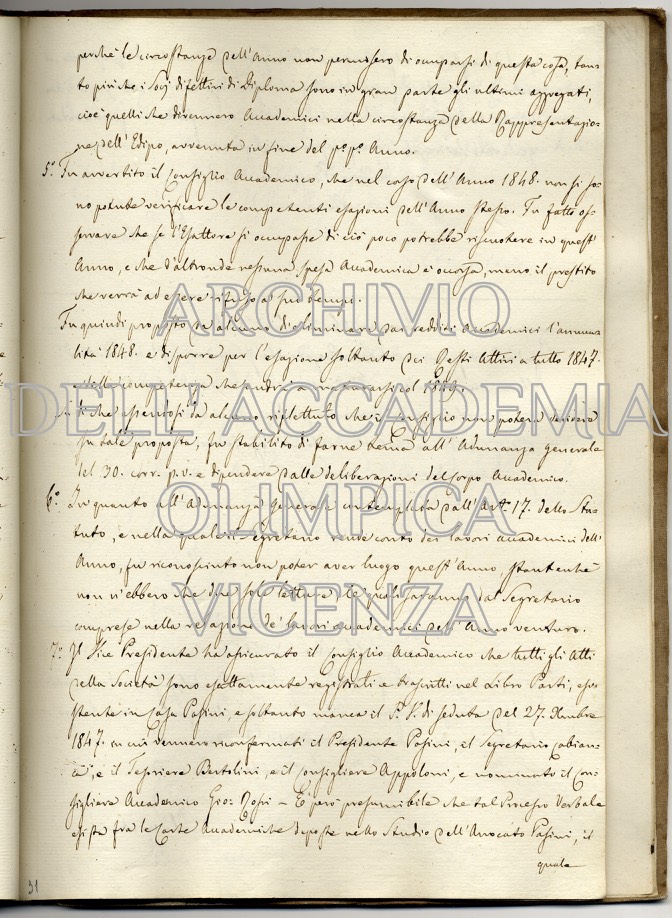 perchè le circostanze dell'Anno non permisero di occuparsi di questa cosa, tan-
to più che i Socj difettivi di Diploma sono in gran parte gli ultimi aggregati,
cioè quelli che divennero Accademici nella circostanza della Rappresentazio-
ne dell'Edipo, avvenuta in fine del p.º p.º Anno.
5.º Fu avvertito il Consiglio Accademico, che nel corso dell'Anno 1848. non si so-
no potute verificare le competenti esazioni dell'Anno stesso. Fu fatto os-
servare che se l'Esattore si occupasse di ciò poco potrebbe riscuotere in quest'
Anno, e che d'altronde nessuna spesa Accademica è occorsa, meno il prestito
che verrà ad essere rifuso a suo tempo.
Fu quindi proposto da alcuno d'eliminare dai redditi Accademici l'annua-
lità 1848. e disporre per l'esazione soltanto dei Resti Attivi a tutto 1847.
e della competenza che andrà a maturarsi col 1849.
Su di che essendosi da alcuno riflettuto che il Consiglio non poteva decidere
su tale proposta, fu stabilito di farne tema all'Adunanza generale
del 30. corr. p. v. e dipendere dalle deliberazioni del Corpo Accademico.
6.º In quanto all'Adunanza generale contemplata dall'Art.º 17. dello Sta-
tuto, e nella quale il Segretario rende conto dei lavori accademici dell'
Anno, fu riconosciuto non poter aver luogo quest'Anno, stantechè
non v'ebbero che due sole letture le quali saranno dal Segretario
comprese nella relazione de' lavori accademici dell'Anno venturo.
7.º Il Vice Presidente ha assicurato il Consiglio Accademico che tutti gli Atti
della Società sono esattamente registrati e trascritti nel Libro Parti, esi-
stente in Casa Pasini, e soltanto manca il P. V. di seduta del 27. Xmbre
1847. in cui vennero riconfermati il Presidente Pasini, il Segretario Cabian-
ca, e il Tesoriere Bertolini, e il Consigliere Appoloni, e nominato il Con-
sigliere Accademico Gio: Rossi - È però presumibile che tal Processo Verbale
esista fra le Carte Accademiche deposte nello Studio dell'Avvocato Pasini, il
quale
31
ARCHIVIO
DELL'ACCADEMIA
OLIMPICA
VICENZA